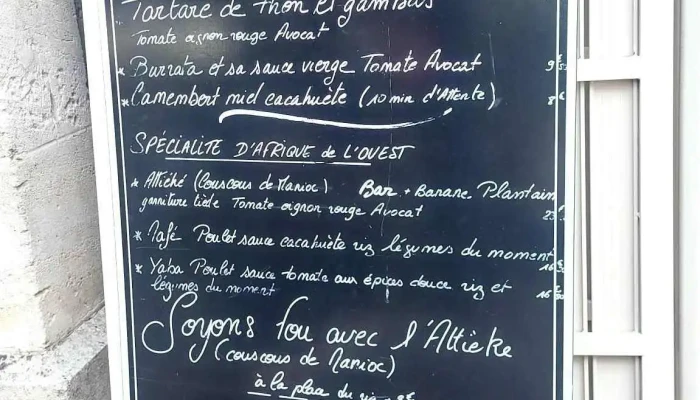 Tartare de thon et gambas
Tomate oignon rouge Avocat
* Burrata et sa sauce vierge Tomate Avocat 9€50
* Camembert miel cacahuète (10 min d'Attente) 8€
SPÉCIALITE D'AFRIQUE de L'OUEST
* Attiéké (Couscous de Manioc) Bar + Banane Plantain
garniture tiède Tomate oignon rouge Avocat 23€
* Mafé Poulet sauce cacahuète riz légumes du moment 16€50
* Yaba Poulet sauce tomate aux épices douce riz et
légumes du moment 16€50
Soyons fou avec l'Attieke
(couscous de Manioc)
à la place du riz